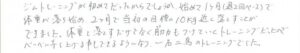 ジムトレーニングが初めてだったからでしょうか、始めて1ヶ月(週2回ペース)で
体重が落ち始め、2ヶ月で当初の目標の10kg近く落とすことが
できました。体重を落とすだけでなく筋肉もつけていくトレーニングだったので
ベンチプレスも上がる様になるという一石二鳥のトレーニングでした。